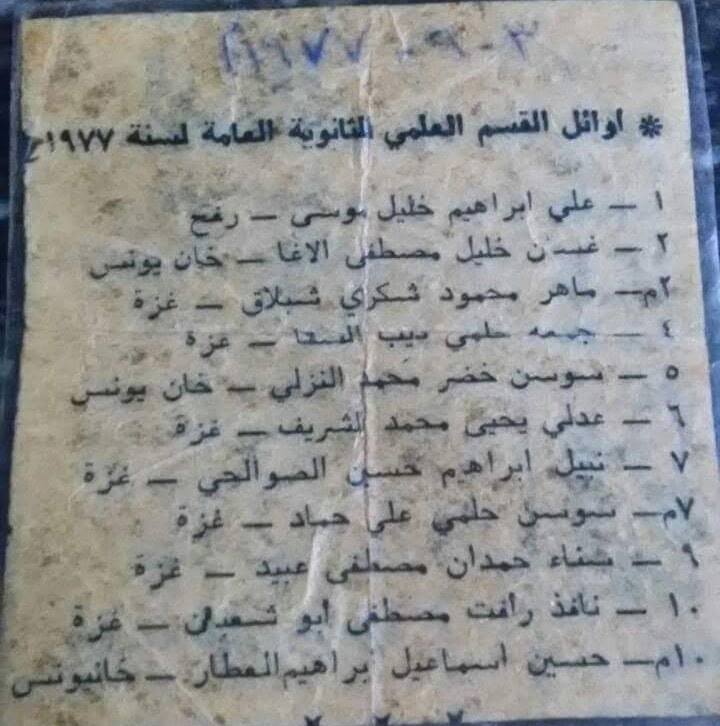 ٣-٩-١٩٧٧
* اوائل القسم العلمي للثانوية العامة لسنة ١٩٧٧
١ — علي ابراهيم خليل موسى — رفح
٢ — غسان خليل مصطفى الاغا — خان يونس
٢م— ماهر محمود شكري شبلاق — غزة
٤ — جمعه حلمي ديب السقا — غزة
٥ — سوسن خضر محمد النزلي — خان يونس
٦ — عدلي يحيى محمد الشريف — غزة
٧ — نبيل ابراهم حسين الصوالحي — غزة
٧م— سوسن حلمي علي حماد — غزة
٩ — سناء حمدان مصطفى عبيد — غزة
١٠ — نافذ رافت مصطفى ابو شعبان — غزة
١٠م— حسين اسماعيل ابراهيم العطار — خانيونس